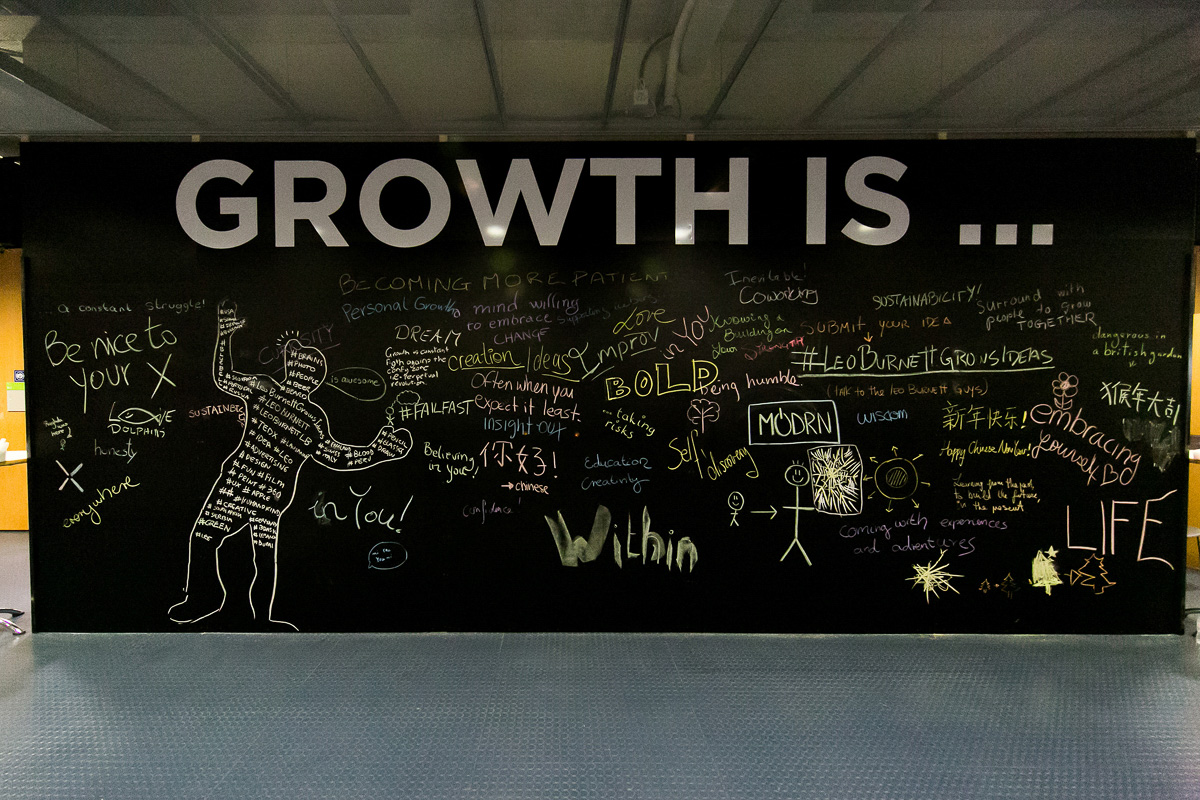 GROWTH IS ...
BECOMING MORE PATIENT
Inevitable!
Coworking
... a constant struggle!
Personal Growth
mind willing
to embrace
CHANGE
SUSTAINABILITY!
Surround with
people to grow
TOGETHER
Be nice to
your X
DREAM
Growth is constant
fight against the
comfort zone
creation
Ideas
Improv
Love
in YOU
Knowing a
Building on
your
SUBMIT your IDEA
#LEOBURNETTGROWSIDEAS
(TALK TO THE LEO BURNETT GUYS)
dangerous in
a british garden
is awesome
Often when you
expect it least.
insight out
BOLD
being humble.
... taking
risks
#FAILFAST
LOVE
DOLPHINS
honesty
everywhere
#BRAINS
#PHOTO
#PEOPLE
#BEER
#LEOBURNETT
#TEDX
#IDEA
#LEO
#DESIGN
#FUN #FILM
#PEINT #360
#UX #APPLE
#HUMANKIND
#CREATIVE
#GREEN
#LEO
Believing
in you!
你好!
→ chinese
Education
Creativity
Self discovery
MODRN
wisdom
新年快乐!
Happy Chinese New Year!
猴年大吉
embracing
yourself
Learning from the past,
to build the future,
in the present
confidence
in You!
Within
Coming with experiences
and adventures
LIFE